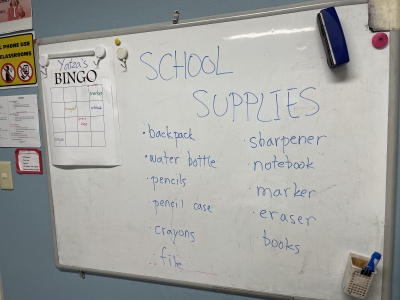 PHONE USE
CLASSROOMS
Yatza's
BINGO
SCHOOL
SUPPLIES
· backpack
· water bottle
· pencils
· pencil case
· crayons
· file
· sharpener
· notebook
· marker
· eraser
· books